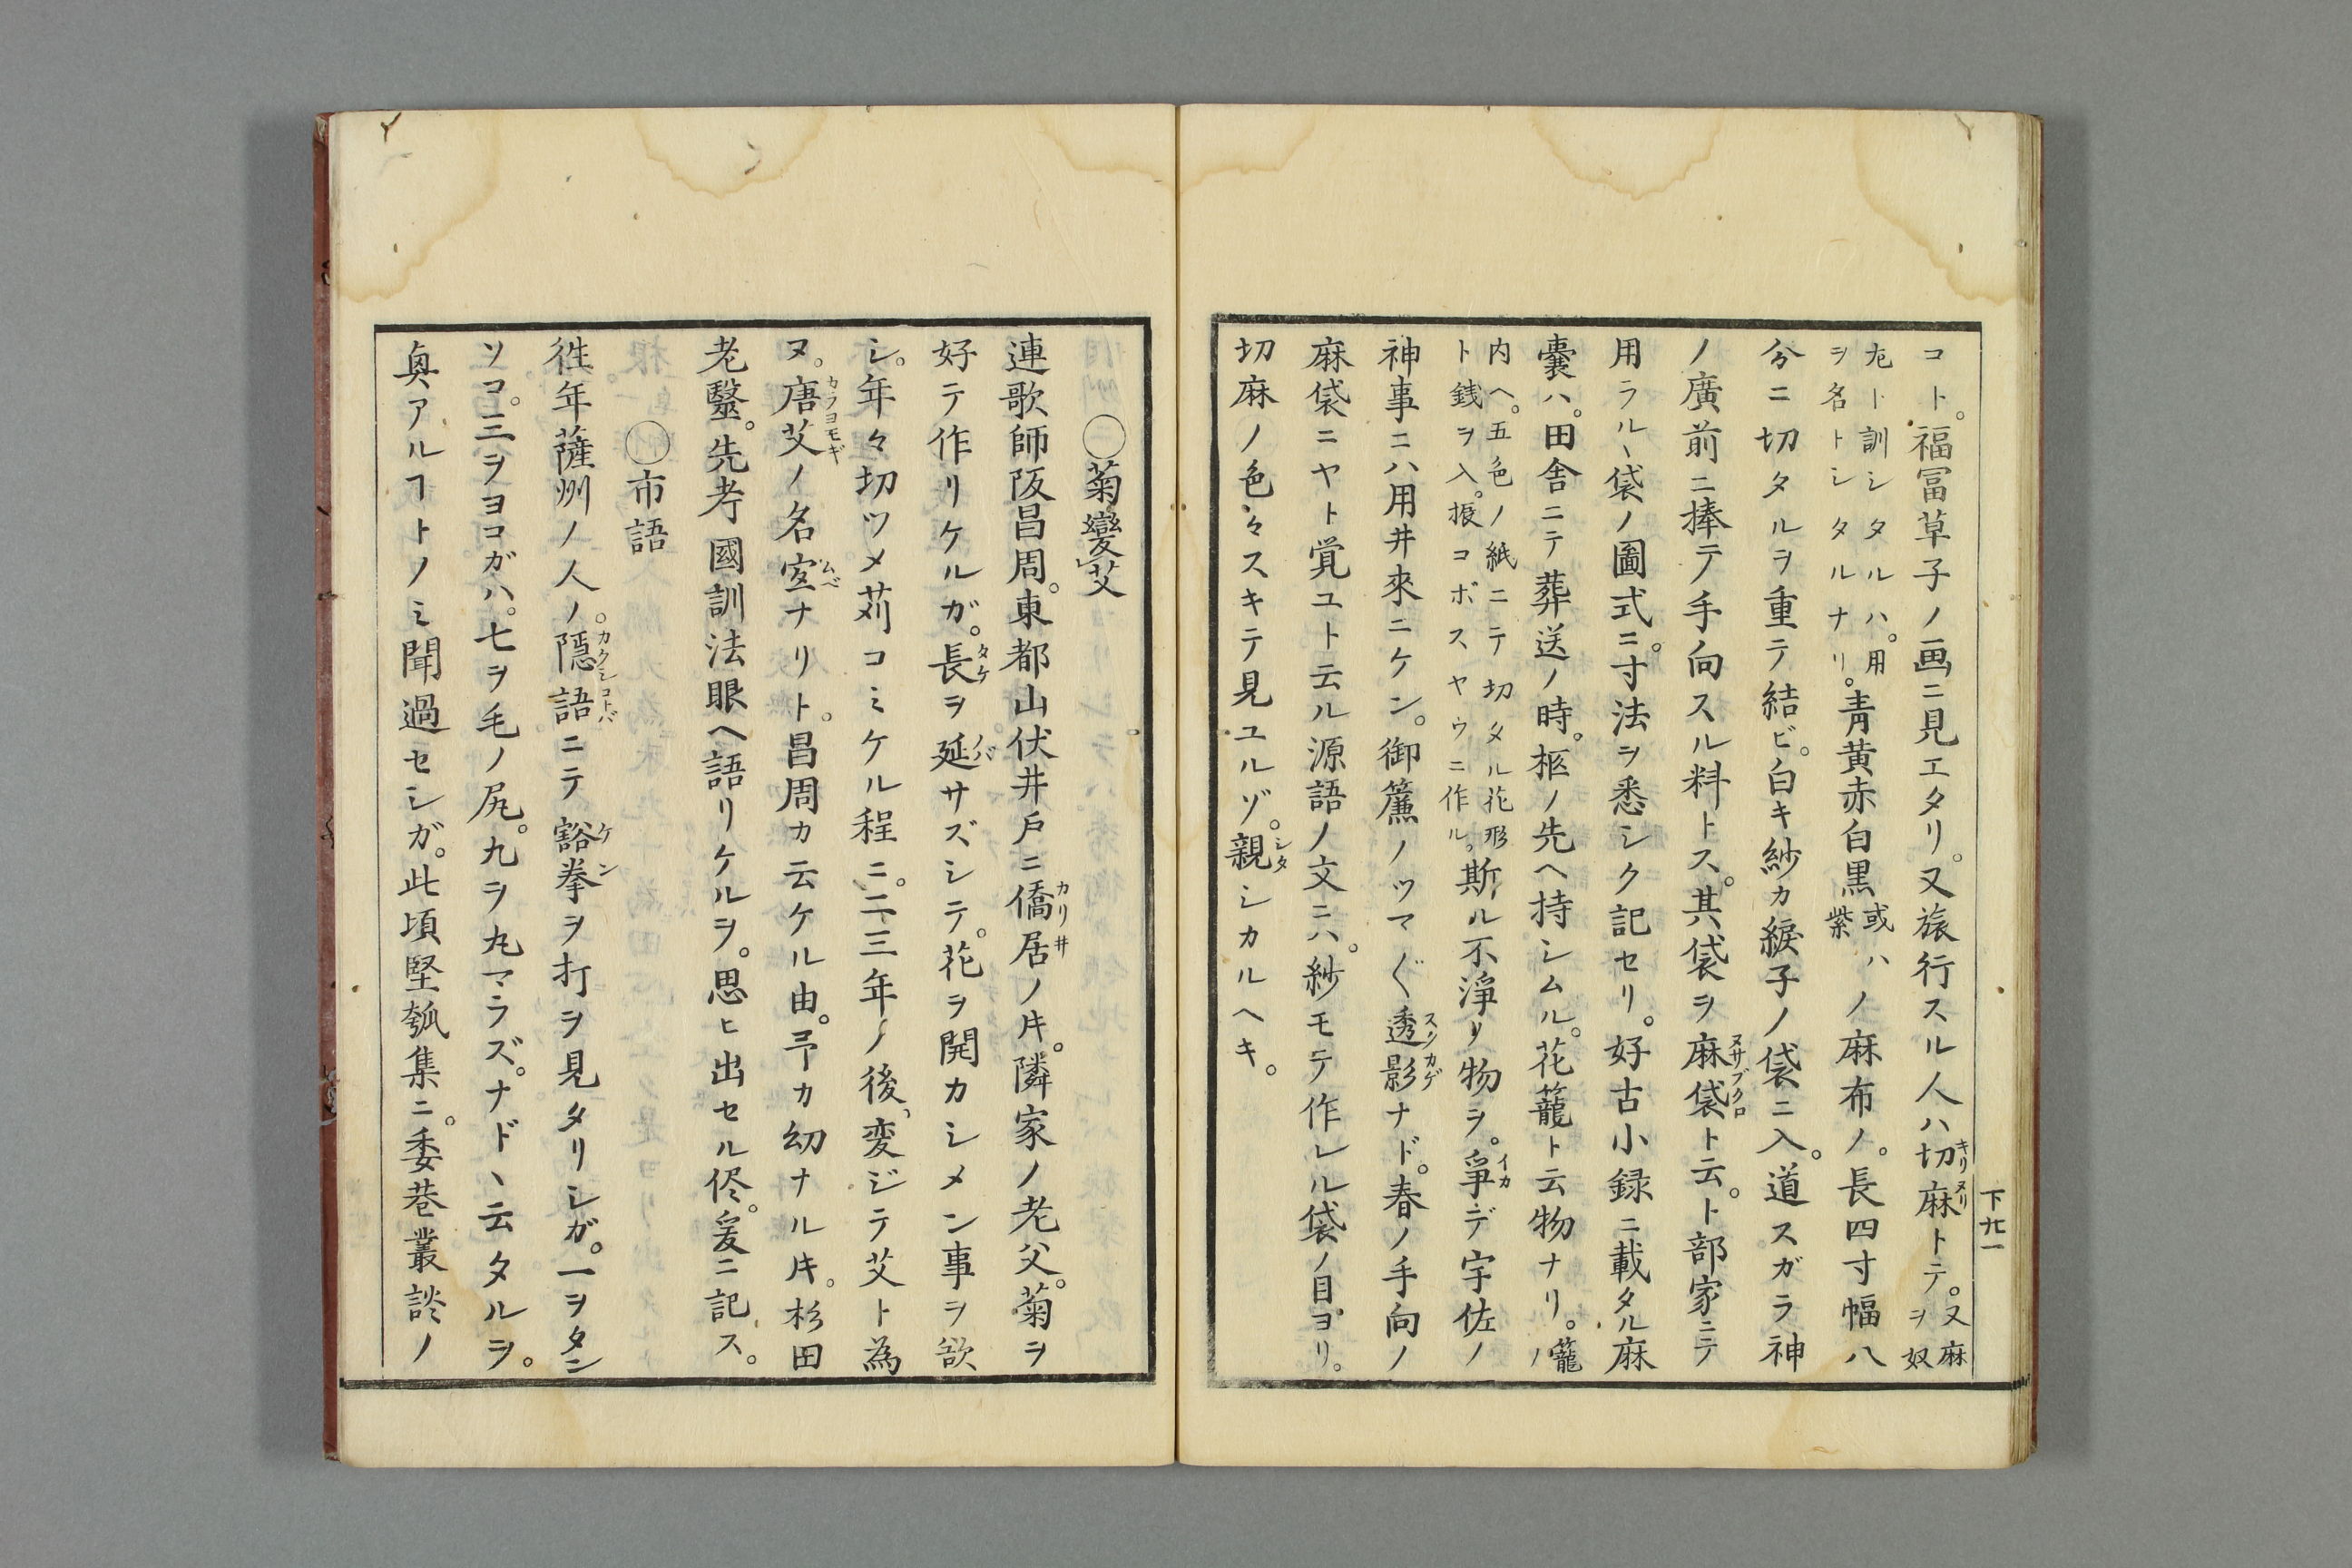 コト。福冨草子ノ画ニ見エタリ。又旅行スル人ハ切麻トテ。又麻ヲ奴
尨ト訓シタルハ。用ヲ名トシタルナリ。青黄赤白黒或ハ紫ノ麻布ノ。長四寸幅八
分ニ切タルヲ重テ結ビ。白キ紗カ綟子ノ袋ニ入。道スガラ神
ノ廣前ニ捧テ手向スル料トス。其袋ヲ麻袋ト云。ト部家ニテ
用ラルヽ袋ノ圖式ニ。寸法ヲ悉シク記セリ。好古小録ニ載タル麻
嚢ハ。田舎ニテ葬送ノ時。柩ノ先ヘ持シムル。花籠ト云物ナリ。籠ノ
内ヘ。五色ノ紙ニテ切タル花形ト銭ヲ入。振コボスヤウニ作ル。斯ル不淨リ物ヲ。爭デ宇佐ノ
神事ニハ用井來ニケン。御簾ノツマ〲透影ナド。春ノ手向ノ
麻袋ニヤト覚ユト云ル源語ノ文ニハ。紗モテ作レル袋ノ目ヨリ。
切麻ノ色々スキテ見ユルゾ。親シカルヘキ。
キリヌリ
ヌサブクロ
イカ
スクカゲ
シタ
下廿一
〇菊變艾
連歌師阪昌周。東都山伏井戸ニ僑居ノ𪜈。隣家ノ老父。菊ヲ
好テ作リケルガ。長ヲ延サズシテ。花ヲ開カシメン事ヲ欲
シ。年々切ツメ苅コミケル程ニ。二三年ノ後、変ジテ艾ト為
ヌ。唐艾ノ名宐ナリト。昌周カ云ケル由。予カ幼ナル𪜈。杉田
老毉。先考國訓法眼ヘ語リケルヲ。思ヒ出セル侭。爰ニ記ス。
〇市語
徃年薩州ノ人ノ。隠語ニテ豁拳ヲ打ヲ見タリシガ。一ヲタン
ソコ。三ヲヨコガハ。七ヲ毛ノ尻。九ヲ丸マラズ。ナド丶云タルヲ。
奥アルヿトノミ聞過セシガ。此頃堅瓠集ニ。委巷叢談ノ
カリ井
タケ
ノバ
カラヨモギ
ムベ
カクシコトバ
ケン